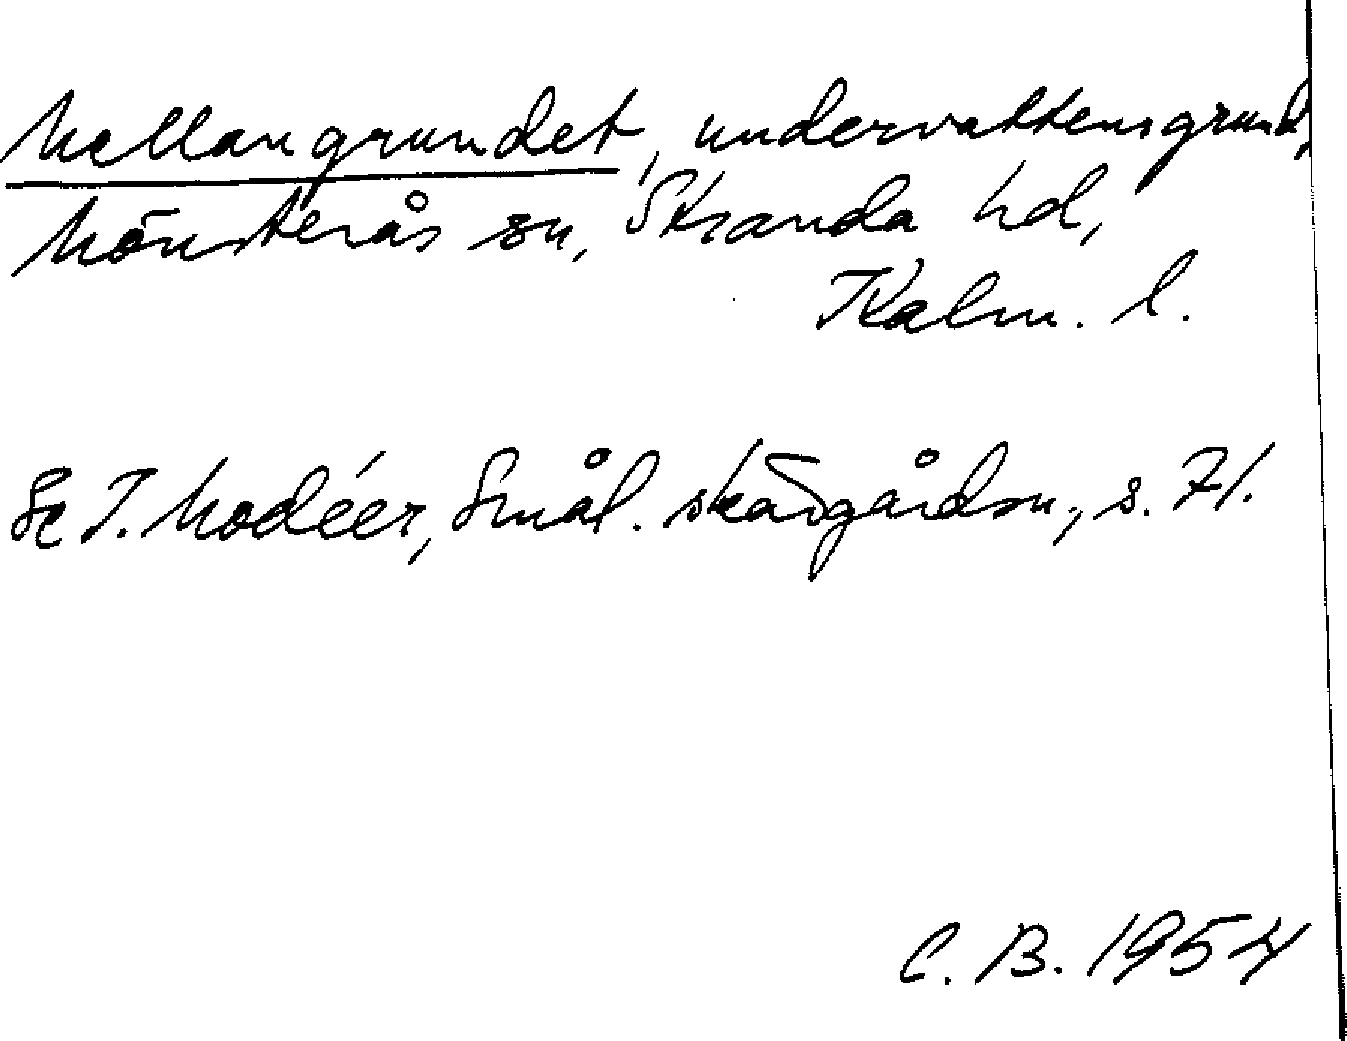 Mellangrundet, undervattensgrund,
Mönsterås sn, Stranda hd,
Kalm. l.
Se I. Modéer, Smål. skärgårdsn., s. 71.
C. B. 1954